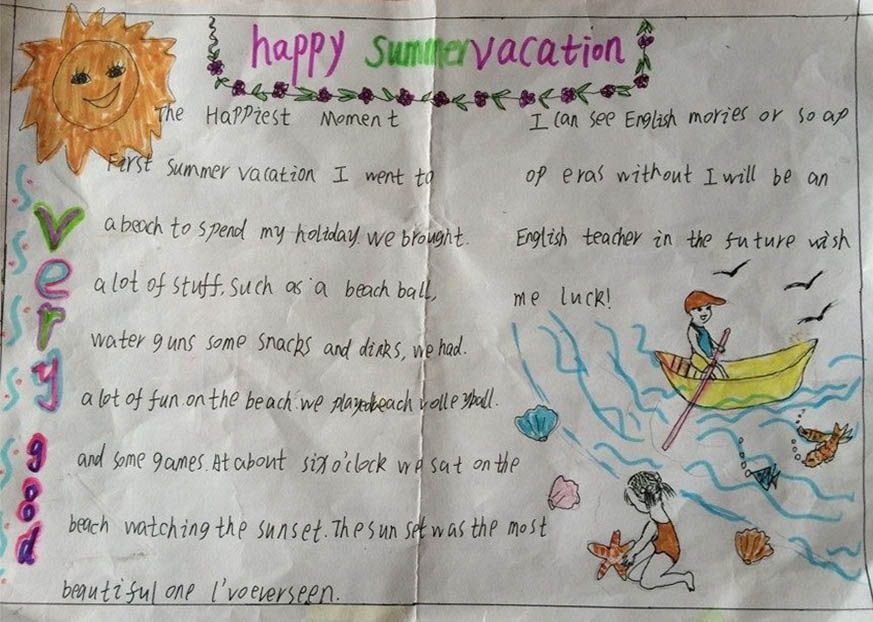 happy summer vacation
very good
The Happiest Moment
First summer vacation I went to
a beach to spend my holiday. we brought.
a lot of stuff. such as a beach ball,
water guns some snacks and dinks, we had.
a lot of fun. on the beach. we played beach volleyball.
and some games. At about six o'clock we sat on the
beach watching the sunset. The sun set was the most
beautiful one I'voeverseen.
I can see English mories or so ap
op eras without I will be an
English teacher in the future wish
me luck!